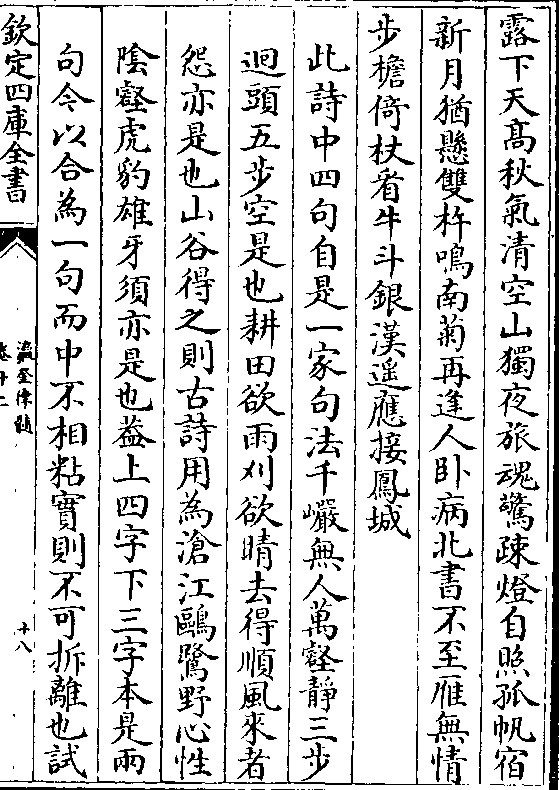 露下天髙秋氣清空山獨夜旅魂驚疎燈自照孤帆宿
新月猶懸雙杵鳴南菊再逢人卧病北書不至雁無情
步檐倚杖看牛斗銀漢遥應接鳳城
此詩中四句自是一家句法千巖無人萬壑静三步
迥頭五步空是也耕田欲雨刈欲晴去得順風來者
怨亦是也山谷得之則古詩用為滄江鷗鷺野心性
陰壑虎豹雄牙須亦是也葢上四字下三字本是兩
句今以合為一句而中不相粘實則不可拆離也試
欽定四庫全書
瀛奎律髓
卷十二
十八